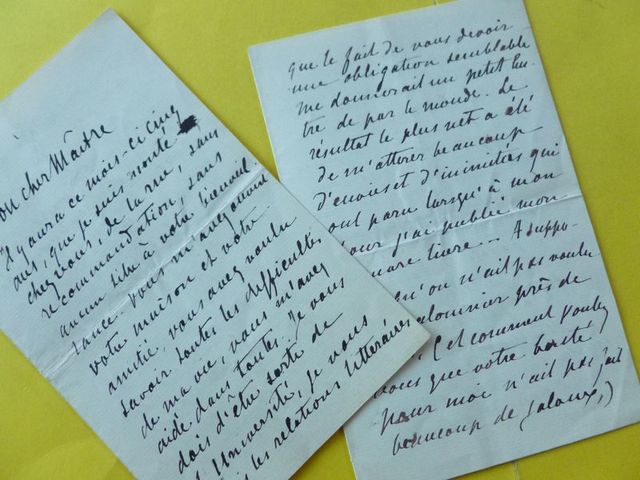 on cher Maître
Il y aura ce mois-ci cinq
ans, que je suis monté
chez vous, de la rue, sans
recommandation, sans
aucun titre à votre bienveil-
lance. Vous m'avez ouvert
votre maison et votre
amitié, vous avez voulu
savoir toutes les difficultés
de ma vie, vous m'avez
aidé dans toutes. Je vous
dois d'être sorti de
l'Université, je vous
les relations littéraires
que le fait de vous devoir
une obligation semblable
me donnerait un petit lus-
tre de par le monde. Le
résultat le plus net a été
de m'attirer beaucoup
d'envies et d'inimitiés qui
ont paru lorsqu'à mon
tour j'ai publié mon
livre. A suppo-
qu'on n'ait pas voulu
calomnier près de
(et comment voulez
vous que votre bonté
pour moi n'ait pas fait
beaucoup de jaloux,)